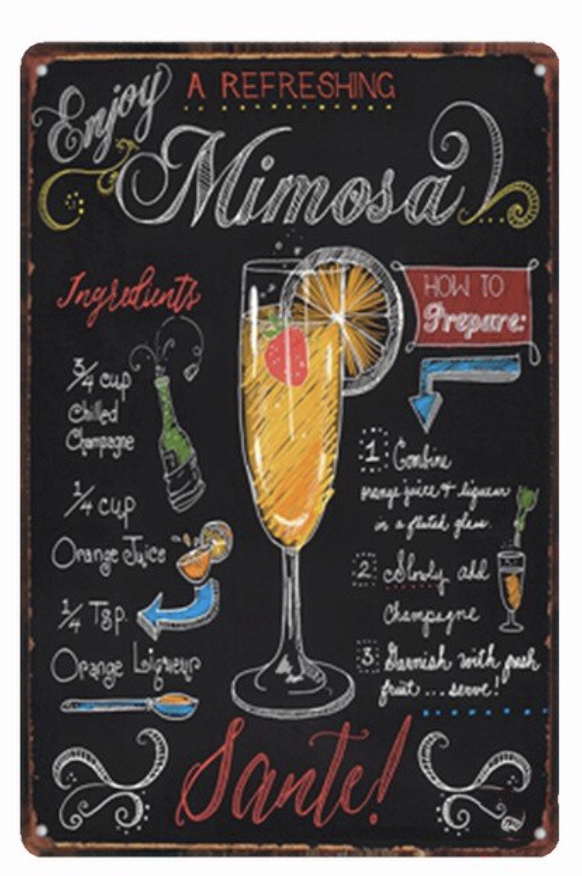 Enjoy
A REFRESHING
Mimosa
Ingredients
3/4 cup
Chilled
Champagne
1/4 cup
Orange Juice
1/4 Tsp.
Orange Liqueur
HOW TO
Prepare:
1 Combine
orange juice & liqueur
in a fluted glass.
2 Slowly add
Champagne
3 Garnish with fresh
fruit ... serve!
Sante!